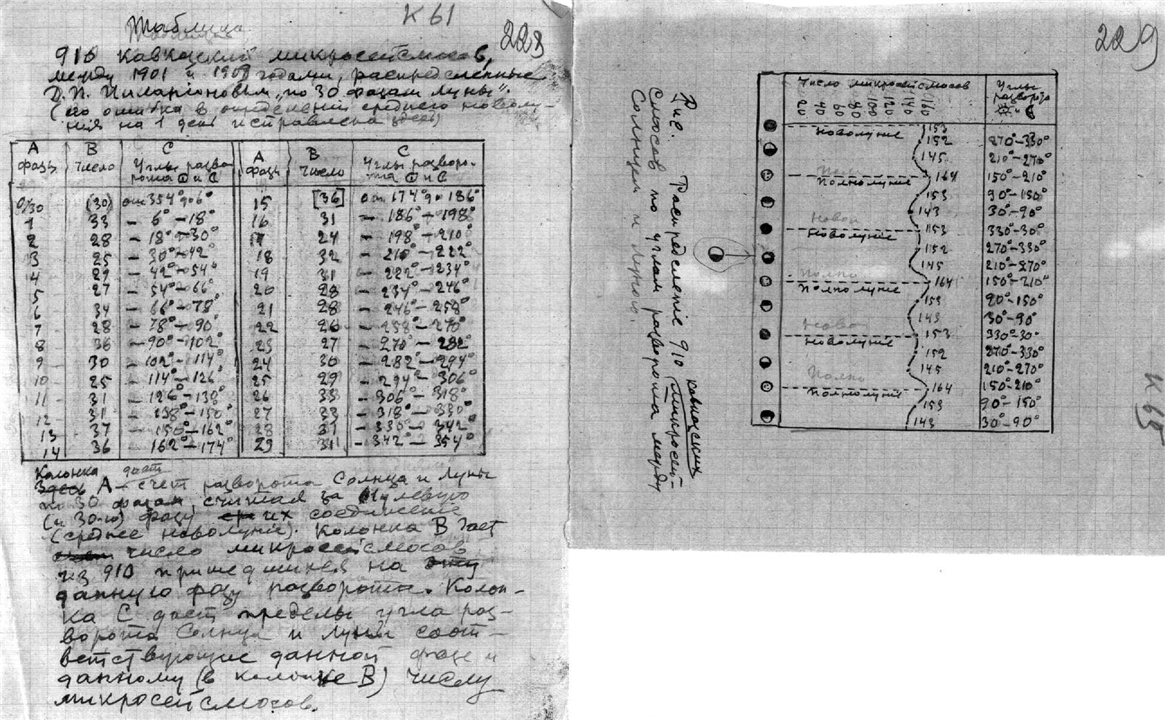 К 61
228
Таблица
910 Кавказских микросейсмосов,
между 1901 и 1909 годами, распределенные
Д. П. Пиларионовым „по 30 фазам луны".
(его ошибка в среднего новолу-
ния на 1 день исправлена здесь)
А фазы В число С Углы разво-рота ☉ и С А фазы В число С Углы разворо-та ☉ и С
0/30 (30) от 354° до 6° 15 [36] от 174° до 186°
1 33 — 6° — 18° 16 31 — 186° — 198°
2 28 — 18° — 30° 17 24 — 198° — 210°
3 25 — 30° — 42° 18 32 — 210° — 222°
4 29 — 42° — 54° 19 31 — 222° — 234°
5 27 — 54° — 66° 20 28 — 234° — 246°
6 34 — 66° — 78° 21 28 — 246° — 258°
7 28 — 78° — 90° 22 26 — 258° — 270°
8 36 — 90° — 102° 23 27 — 270° — 282°
9 30 — 102° — 114° 24 30 — 282° — 294°
10 25 — 114° — 126° 25 29 — 294° — 306°
11 31 — 126° — 138° 26 33 — 306° — 318°
12 31 — 138° — 150° 27 33 — 318° — 330°
13 37 — 150° — 162° 28 31 — 330° — 342°
14 36 — 162° — 174° 29 31 — 342° — 354°
Колонка дает
А — счет разворота Солнца и Луны
по 30 фазам, считая за Нулевую
(и 30-ю) фазу их соединение
(среднее новолуние). Колонка В дает
число микросейсмосов
из 910 пришедшихся на
данную фазу разворота. Колон-
ка С дает пределы угла раз-
ворота Солнца и Луны соот-
ветствующие данной фазе и
данному (в колонке В) числу
микросейсмосов.
229
Рис. Распределение 910 кавказских микросей-
смосов по углам разворота между
Солнцем и Луною.
Число микросейсмосов
20 40 60 80 100 120 140 160
Углы разворота
153
Новолуние 152 270°—330°
145 210°—270°
164 150°—210°
Полнолуние
153 90°—150°
143 30°—90°
Новол
153 330°—30°
Новолуние
152 270°—330°
145 210°—270°
Полно
164 150°—210°
Полнолуние
153 90°—150°
143 30°—90°
Новол
153 330°—30°
Новолуние
152 270°—330°
145 210°—270°
Полно
164 150°—210°
Полнолуние
153 90°—150°
143 30°—90°
К 65